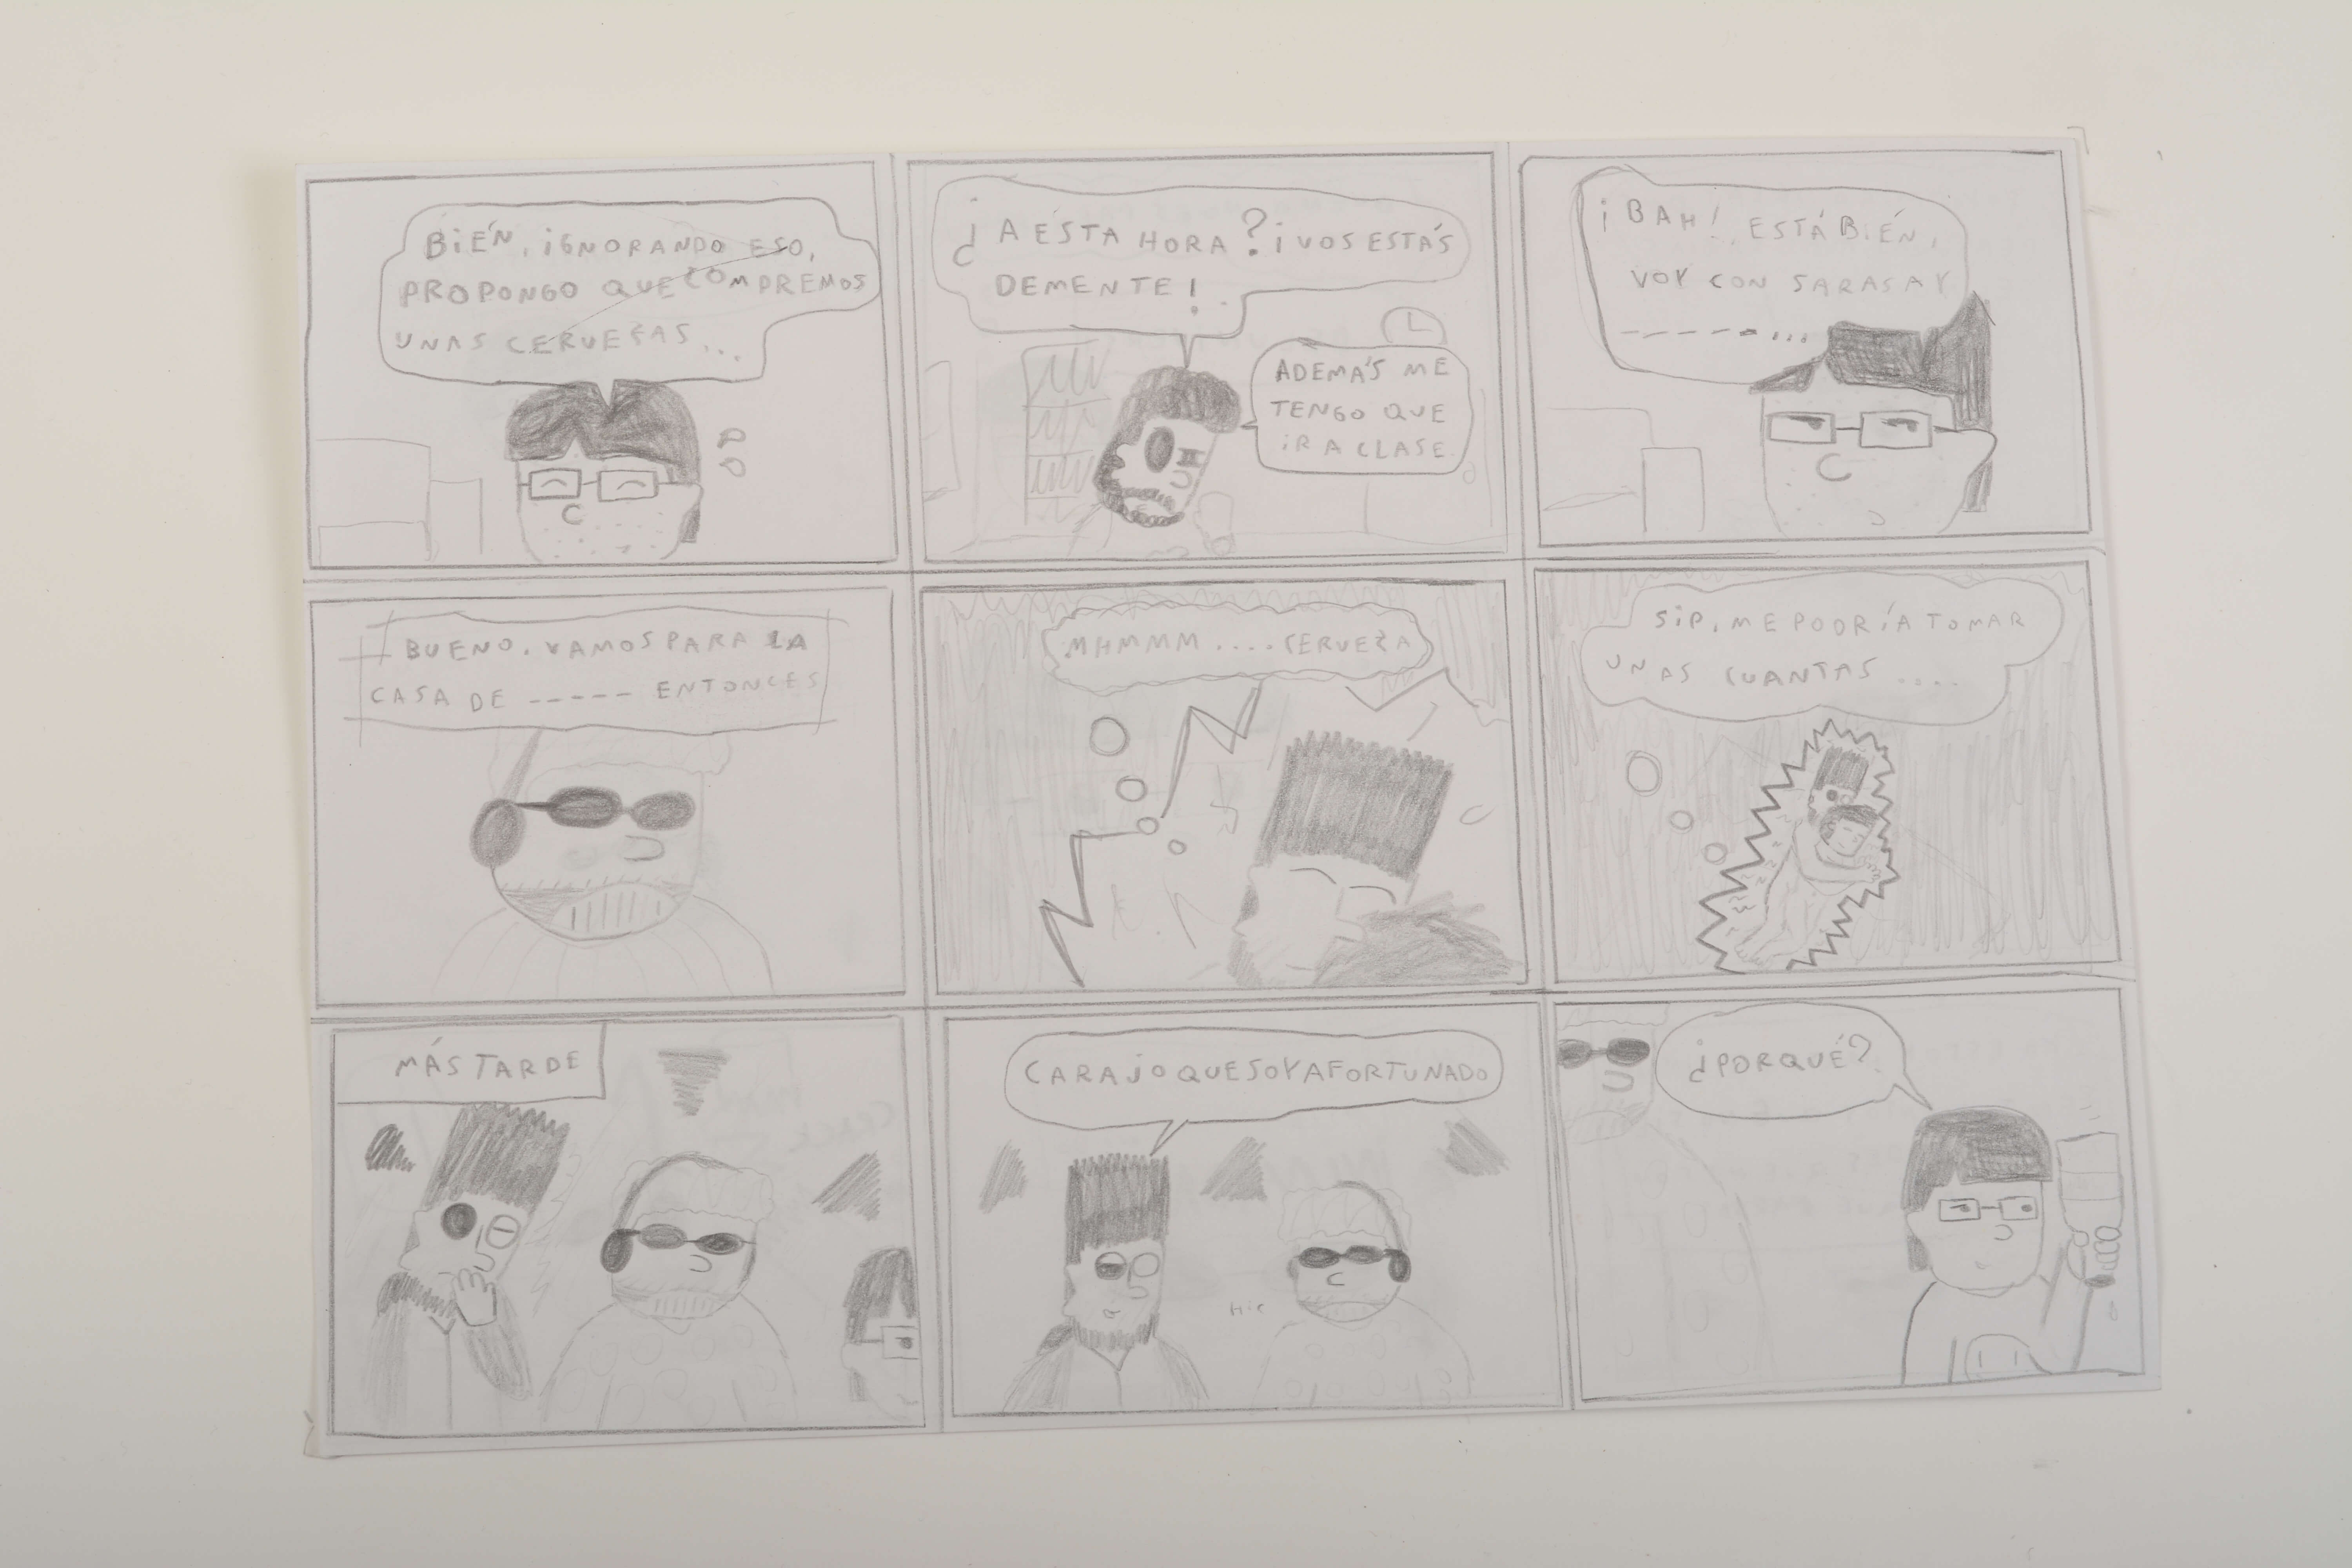 BIÉN, IGNORANDO ESO,
PROPONGO QUE COMPREMOS
UNAS CERVEZAS...
¿A ÉSTA HORA? ¡VOS ESTÁS
DEMENTE!
ADEMÁS ME
TENGO QUE
IR A CLASE.
¡BAH! ESTÁ BIÉN,
VOY CON SARASA Y
------...
BUENO, VAMOS PARA LA
CASA DE ----- ENTONCES
MHMMM....CERVEZA
SIP, ME PODRÍA TOMAR
UNAS CUANTAS ....
MÁS TARDE
CARAJO QUE SOY AFORTUNADO
HIC
¿PORQUÉ?